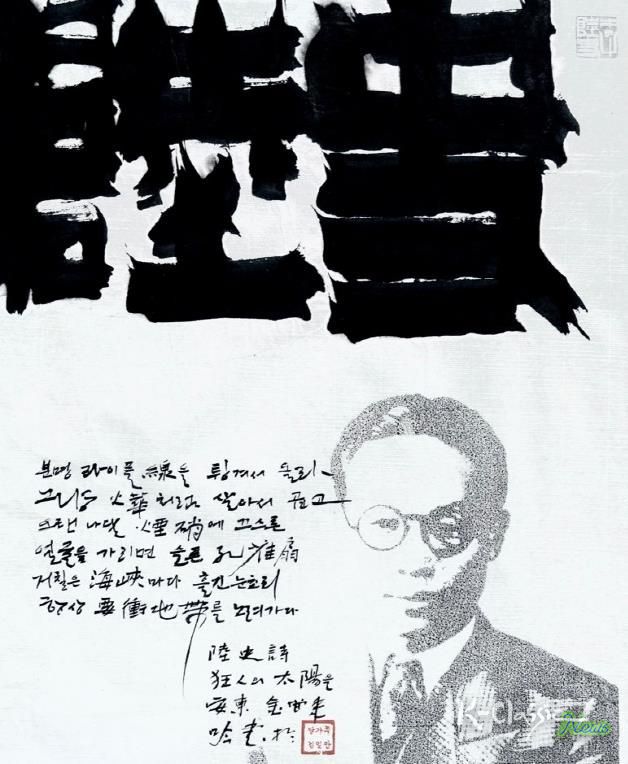 분명 라이플線을 튕겨서 올라
그냥 火華처럼 살아서 곱고
오랜 나달 煙硝에 끄스른
얼굴을 가리면 슬픈 孔雀扇
거칠은 海峽마다 흘긴 눈초리
항상 要衝地帶를 노려가다
陸史詩
狂人의 太陽을
安東 金
K-Classic News